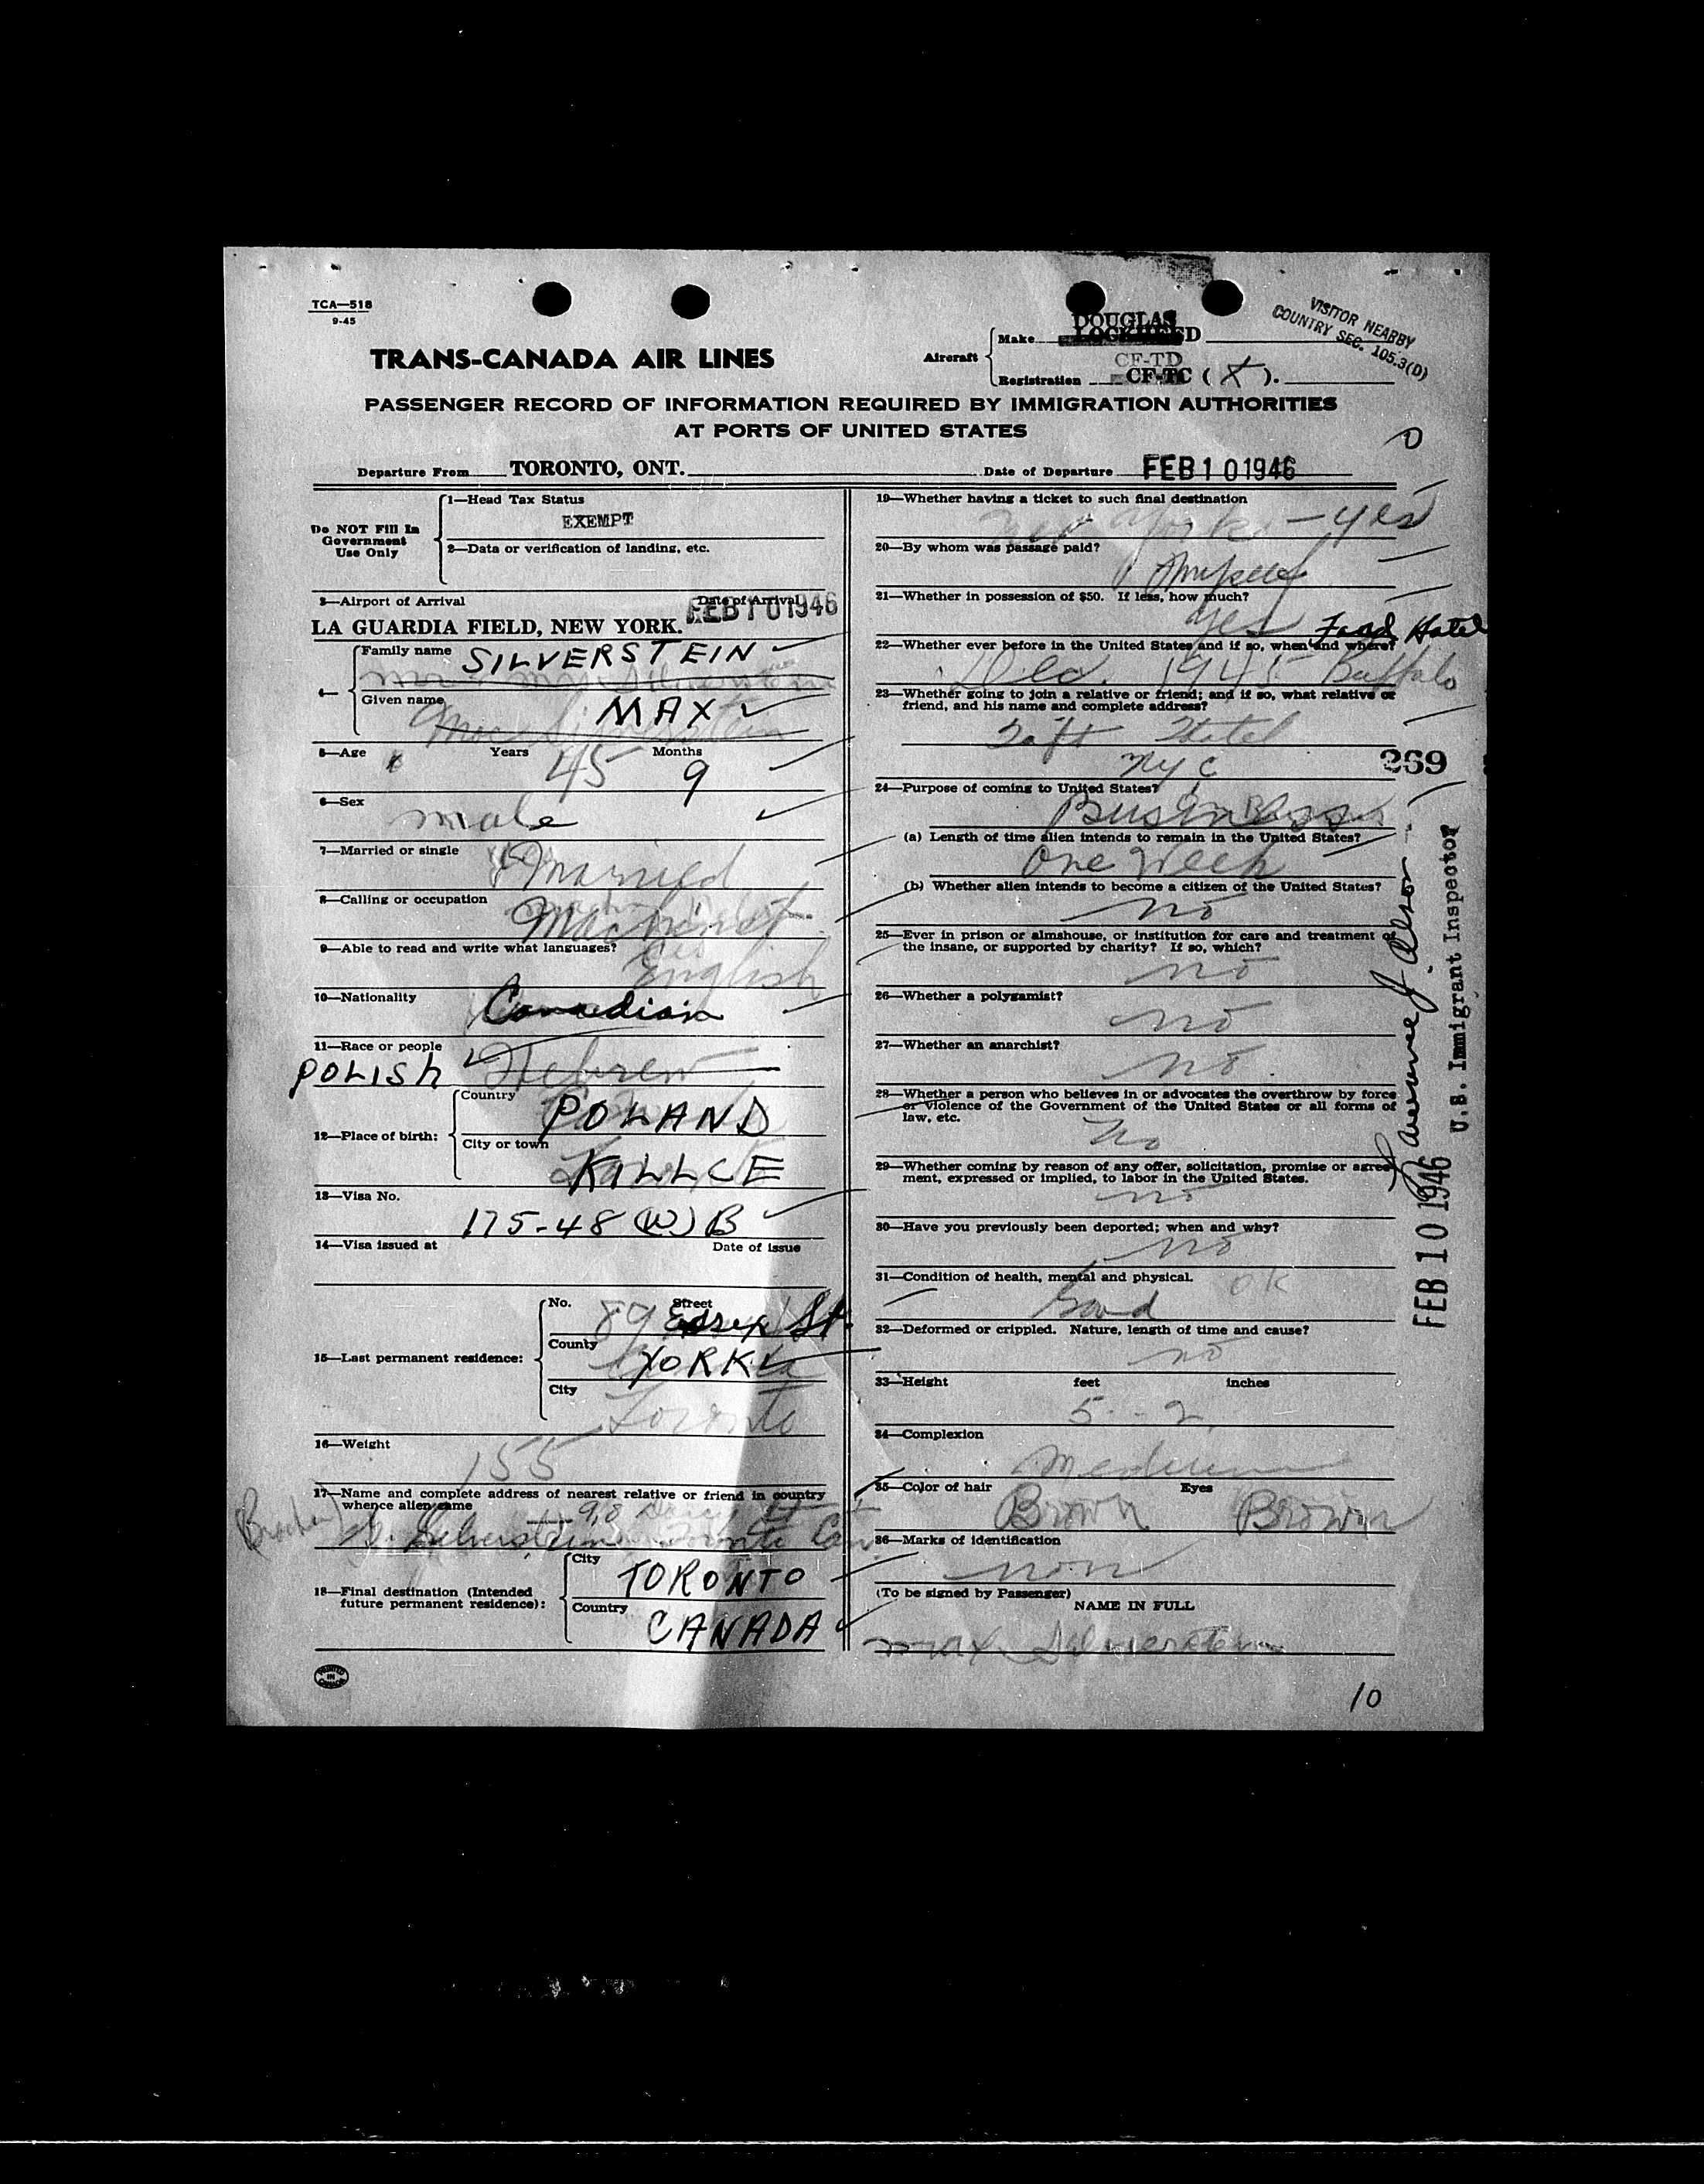 TCA—518
9-45
TRANS-CANADA AIR LINES
Aircraft
Make
DOUGLAS
LOCKHEED
CF-TD
Registration CF-TC (X).
VISITOR NEARBY
COUNTRY SEC. 105.3(D)
PASSENGER RECORD OF INFORMATION REQUIRED BY IMMIGRATION AUTHORITIES
AT PORTS OF UNITED STATES
Departure From TORONTO, ONT.
Date of Departure FEB 10 1946
Do NOT Fill In
Government
Use Only
1—Head Tax Status
EXEMPT
2—Data or verification of landing, etc.
3—Airport of Arrival
Date of Arrival
LA GUARDIA FIELD, NEW YORK.
FEB 10 1946
4—
Family name SILVERSTEIN
Given name MAX
5—Age Years 45 Months 9
6—Sex
male
7—Married or single
Married
8—Calling or occupation
Machinist
9—Able to read and write what languages?
English
10—Nationality
Canadian
11—Race or people
POLISH Hebrew
12—Place of birth:
Country
POLAND
City or town
KILLCE
13—Visa No.
175-48 (W) B
14—Visa issued at Date of issue
15—Last permanent residence:
No. Street
89 Essex St.
County
YORK
City
Toronto
16—Weight
155
17—Name and complete address of nearest relative or friend in country
whence alien came
(Brother) Silverstein Toronto Can
18—Final destination (Intended
future permanent residence):
City
TORONTO
Country
CANADA
PRINTED
IN
CANADA
19—Whether having a ticket to such final destination
New York - yes
20—By whom was passage paid?
Myself
21—Whether in possession of $50. If less, how much?
yes
22—Whether ever before in the United States and if so, when and where?
Dec. 1945 Buffalo
Hotel
23—Whether going to join a relative or friend; and if so, what relative or
friend, and his name and complete address?
Taft Hotel
NYC
269
24—Purpose of coming to United States?
Business
(a) Length of time alien intends to remain in the United States?
One Week
(b) Whether alien intends to become a citizen of the United States?
no
25—Ever in prison or almshouse, or institution for care and treatment of
the insane, or supported by charity? If so, which?
no
26—Whether a polygamist?
no
27—Whether an anarchist?
no
28—Whether a person who believes in or advocates the overthrow by force
or violence of the Government of the United States or all forms of
law, etc.
No
29—Whether coming by reason of any offer, solicitation, promise or agree-
ment, expressed or implied, to labor in the United States.
no
30—Have you previously been deported; when and why?
no
31—Condition of health, mental and physical.
Good ok
32—Deformed or crippled. Nature, length of time and cause?
no
33—Height feet inches
5 - 2
34—Complexion
Medium
35—Color of hair Eyes
Brown Brown
36—Marks of identification
non
(To be signed by Passenger)
NAME IN FULL
Max Silverstein
U.S. Immigrant Inspector
FEB 10 1946
10